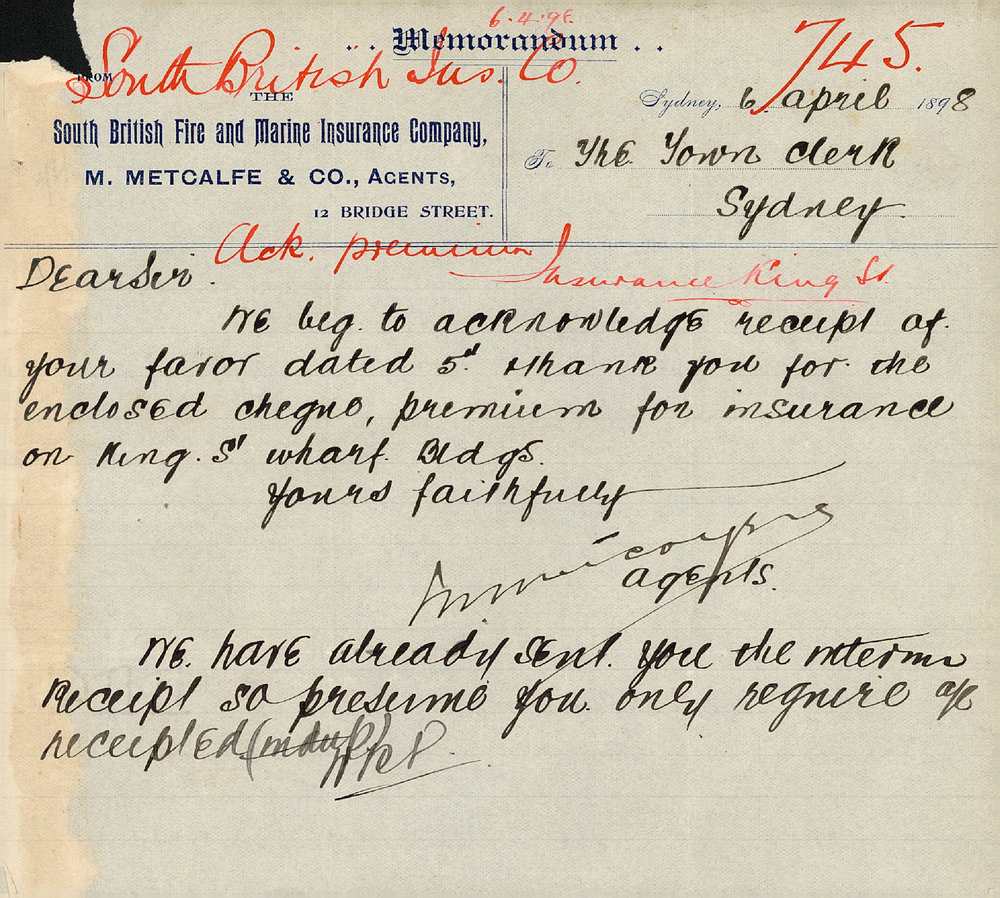 6.4.98.
. . Memorandum . .
745.
FROM
South British Ins. Co.
THE
South British Fire and Marine Insurance Company,
M. METCALFE & CO., AGENTS,
12 BRIDGE STREET.
Sydney, 6 april 1898
To The Town Clerk
Sydney.
Ack. premium
Insurance King St.
Dear Sir.
We beg. to acknowledge receipt of.
your favor dated 5th thank you for. the
enclosed cheque, premium for insurance
on King. St wharf. Bldgs.
Yours faithfully
agents.
We. have already sent. you the interim
Receipt so presume you. only require a/c
receipted